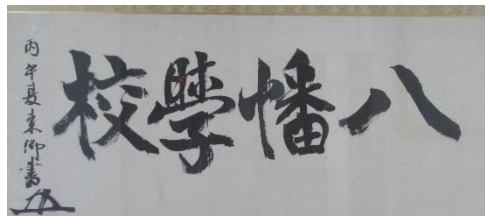 八幡學校
丙午夏書